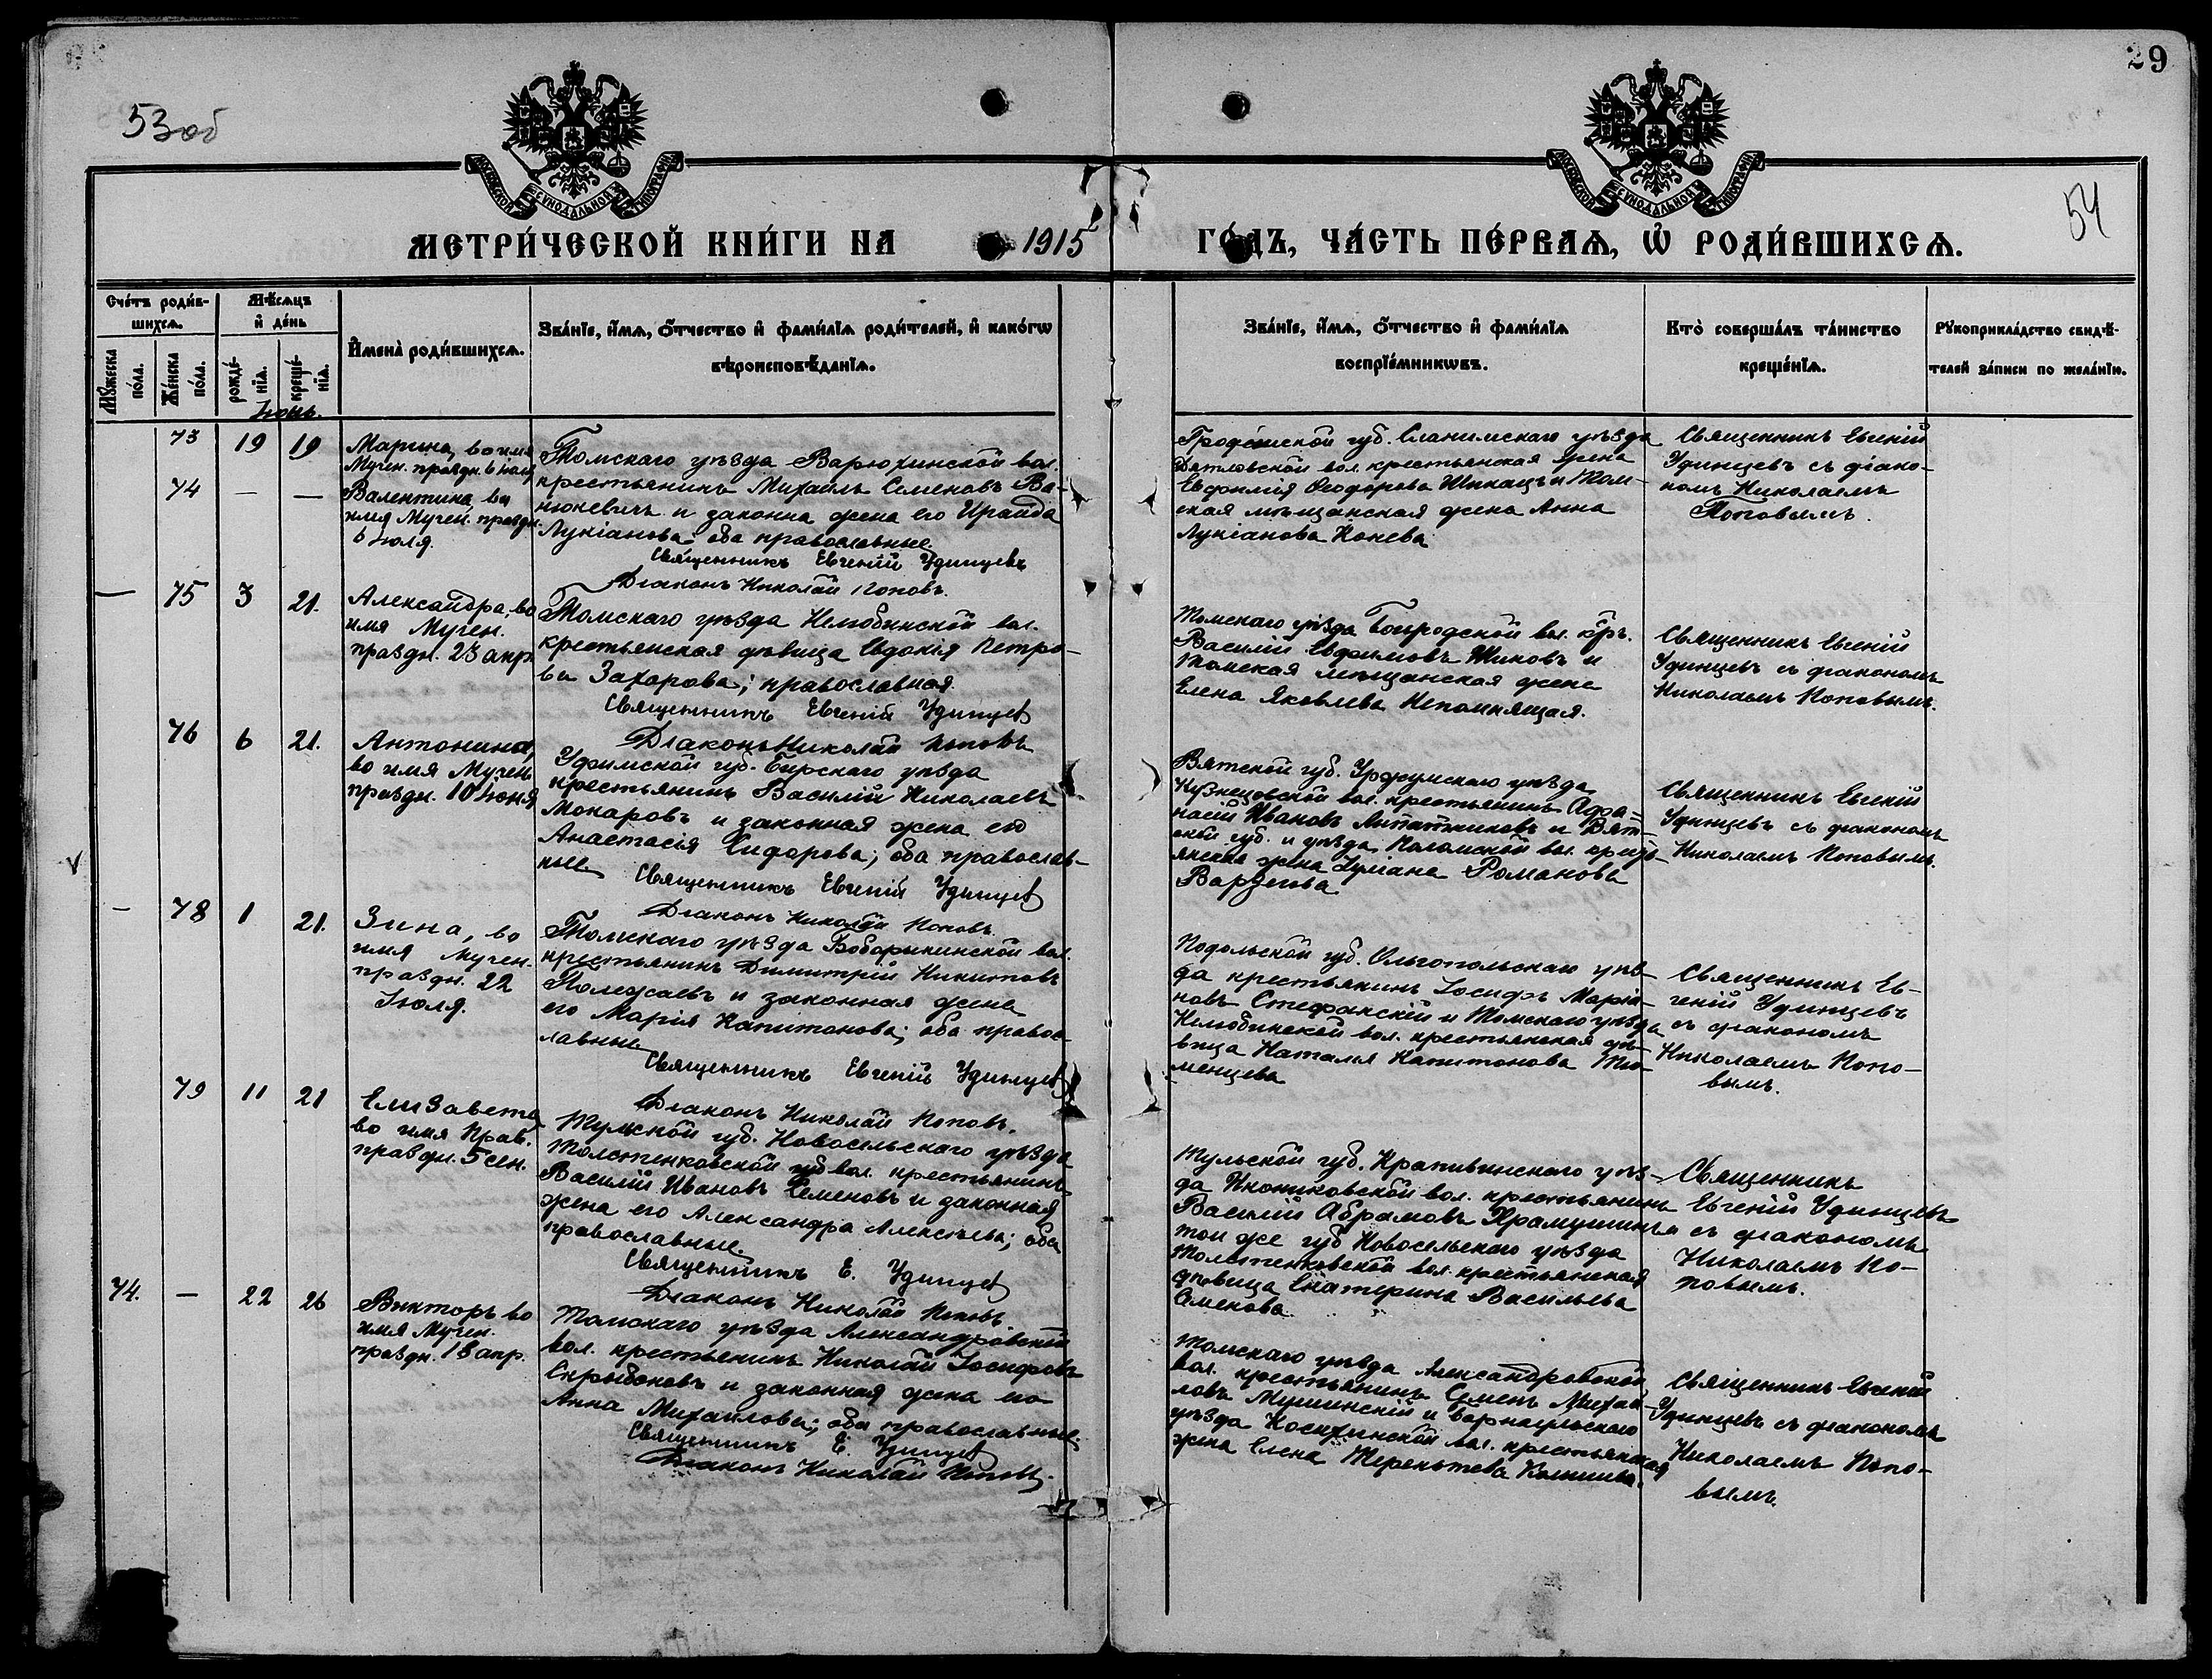 29
53об
54
МОСКОВСКОЙ СѴНОДАЛЬНОЙ ТИПОГРАФІИ
МОСКОВСКОЙ СѴНОДАЛЬНОЙ ТИПОГРАФІИ
МЕТРИ́ЧЕСКОЙ КНИ́ГИ НА 1915 ГО́ДЪ, ЧА́СТЬ ПЕ́РВАѦ, Ѡ҆ РОДИ́ВШИХСѦ.
Сче́тъ роди́в-
шихсѧ.
Мꙋ́жеска по́ла.
Же́нска по́ла.
Мѣ́сѧцъ
и҆ де́нь
рожде́-
нїѧ.
креще́-
нїѧ.
И҆мена̀ роди́вшихсѧ.
Зва́нїе, и҆́мѧ, ѻ҆́тчество и҆ фами́лїѧ роди́телей, и҆ како́гѡ
вѣроисповѣ́данїѧ.
Зва́нїе, и҆́мѧ, ѻ҆́тчество и҆ фами́лїѧ
воспрїе́мникѡвъ.
Кто̀ соверша́лъ та́инство
креще́нїѧ.
Рꙋкоприкла́дство свидѣ́-
телей за́писи по жела́нїю.
Іюнь.
73 19 19
Марина, во имя
Мучен. праздн. 6 іюля
74 — —
Валентина, во
имя Мучен. праздн.
6 іюля.
Томскаго уѣзда Варюхинской вол.
крестьянинъ Михаилъ Семеновъ Ва-
нюкевичъ и законна жена его Ираида
Лукіанова; оба православные.
Священникъ Евгеній Удинцевъ
Діаконъ Николай Поповъ.
Гродненской губ. Слонимскаго уѣзда
Дятловской вол. крестьянская жена
Евфимія Ѳеодорова Шикацъ и Том-
ская мѣщанская жена Анна
Лукіанова Конева
Священникъ Евгеній
Удинцевъ съ діако-
номъ Николаемъ
Поповымъ.
— 75 3 21.
Александра, во
имя Мучен.
праздн. 23 апр.
Томскаго уѣзда Нелюбинской вол.
крестьянская дѣвица Евдокія Петро-
ва Захарова; православная.
Священникъ Евгеній Удинцев
Діаконъ Николай Поповъ
Томскаго уѣзда Богородской вол. кр.
Василій Евфимовъ Шиковъ и
Томская мѣщанская жена
Елена Яковлева Непомнящая.
Священникъ Евгеній
Удинцевъ съ діакономъ
Николаемъ Поповымъ.
76 6 21.
Антонина,
во имя Мучен.
праздн. 10 Іюня
Уфимской губ. Бирскаго уѣзда
крестьянинъ Василій Николаевъ
Мокаровъ и законная жена его
Анастасія Сидорова; оба православ-
ные. Священникъ Евгеній Удинцев
Діаконъ Николай Поповъ.
Вятской губ. Уржумскаго уѣзда
Кузнецовской вол. крестьянинъ Афа-
насій Ивановъ Липатниковъ и Вят-
ской губ. и уѣзда, вол. кресть-
янская жена Іуліана Романова
Священникъ Евгеній
Удинцевъ съ діакономъ
Николаемъ Поповымъ.
— 78 1 21.
Зина, во
имя Мучен.
праздн. 22
Іюля.
Томскаго уѣзда Бобарыкинской вол.
крестьянинъ Димитрій Никитовъ
Полежаевъ и законная жена
его Марія Капитонова; оба правос-
лавные
Священникъ Евгеній Удинцев
Діаконъ Николай Поповъ.
Подольской губ. Ольгопольскаго уѣз-
да крестьянинъ Іосифъ Маріа-
новъ Стефанскій и Томскаго уѣзда
Нелюбинской вол. крестьянская дѣ-
вица Наталья Капитонова Тю-
менцева
Священникъ Ев-
геній Удинцевъ
съ діакономъ
Николаемъ Попо-
вымъ.
79 11 21
Елизавета
во имя Прав.
праздн. 5 сен.
Тульской губ. Новосельскаго уѣзда
Толстенковской вол. крестьянинъ
Василій Ивановъ Семеновъ и законная
жена его Александра Алексѣева; оба
православные.
Священникъ Е. Удинцев
Діаконъ Николай Поповъ
Тульской губ. Крапивинскаго уѣз-
да вол. крестьянинъ
Василій Абрамовъ Храмушинъ и
той же губ Новосельскаго уѣзда
Толстенковской вол. крестьянская
дѣвица Екатерина Васильева
Семенова
Священникъ
Евгеній Удинцевъ
съ діакономъ
Николаемъ По-
повымъ.
74. — 22 26
Викторъ во
имя Мучен.
праздн. 18 апр.
Томскаго уѣзда Александровской
вол. крестьянинъ Николай Іосифовъ
Скрыбоковъ и законная жена его
Анна Михаилова; оба православные
Священникъ Е. Удинцев
Діаконъ Николай Поповъ.
Томскаго уѣзда Александровской
вол. крестьянинъ Семенъ Михай-
ловъ Мушинскій и Барнаульскаго
уѣзда Косихинской вол. крестьянская
жена Елена Терентьева
Священникъ Евгеній
Удинцевъ съ діакономъ
Николаемъ Попо-
вымъ.